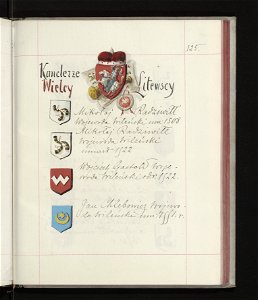 125.
Kanclerze
Wielcy Litewscy
Mikołaj Radziwiłł
Wojewoda Wileński um. 1508
Mikołaj Radziwiłł
wojewoda Wileński
umarł 1522
Wojciech Gasztołd Woje-
woda Wileński od r. 1522.
Jan Chlebowicz Wojewo-
da Wileński um.